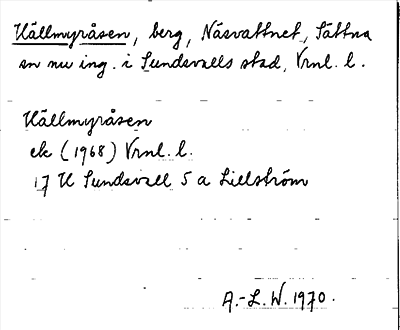 Källmyråsen, berg, Näsvattnet, Sättna
sn nu ing. i Sundsvalls stad, Vrnl. l.
Källmyråsen
ek (1968) Vrnl. l.
17 H Sundsvall 5 a Lillström
A.-L. W. 1970.